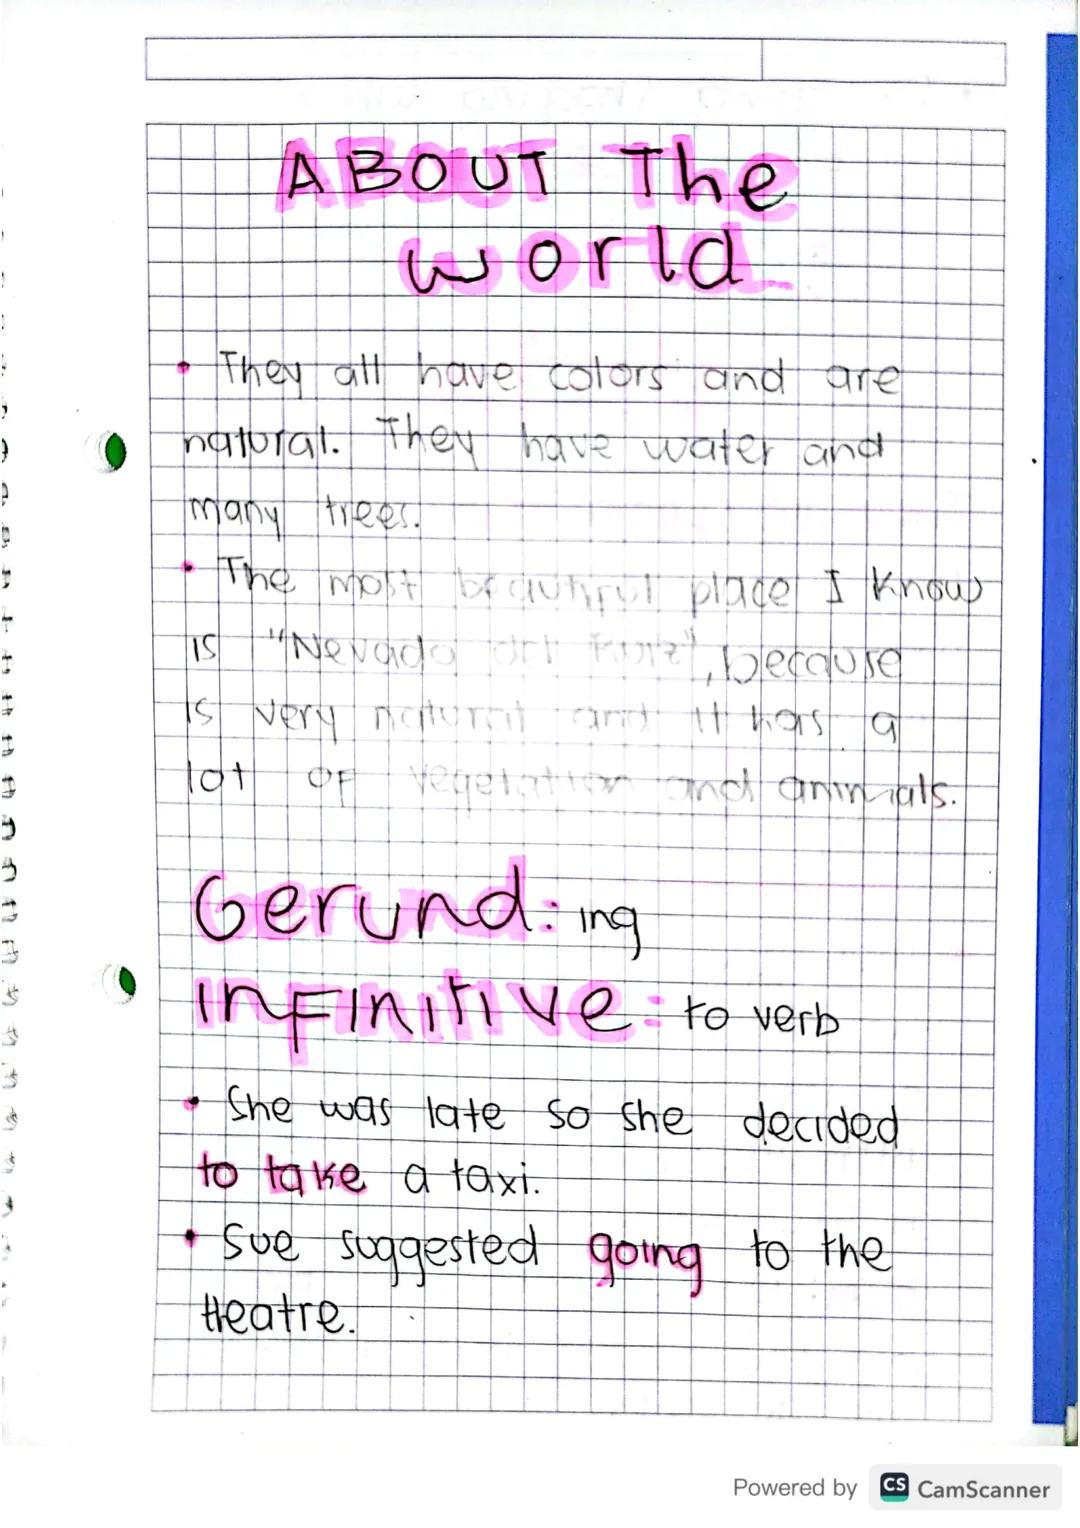 ABOUT The
world
• They all have colors and are
natural. They have water and
many trees.
• The most beautiful place I know
is "Nevado del Ruiz", because
is very natural and it has a
lot of vegetation and animals.
Gerund: ing
Infinitive: to verb
• She was late so she decided
to take a taxi.
• Sue suggested going to the
theatre.
Powered by CS CamScanner